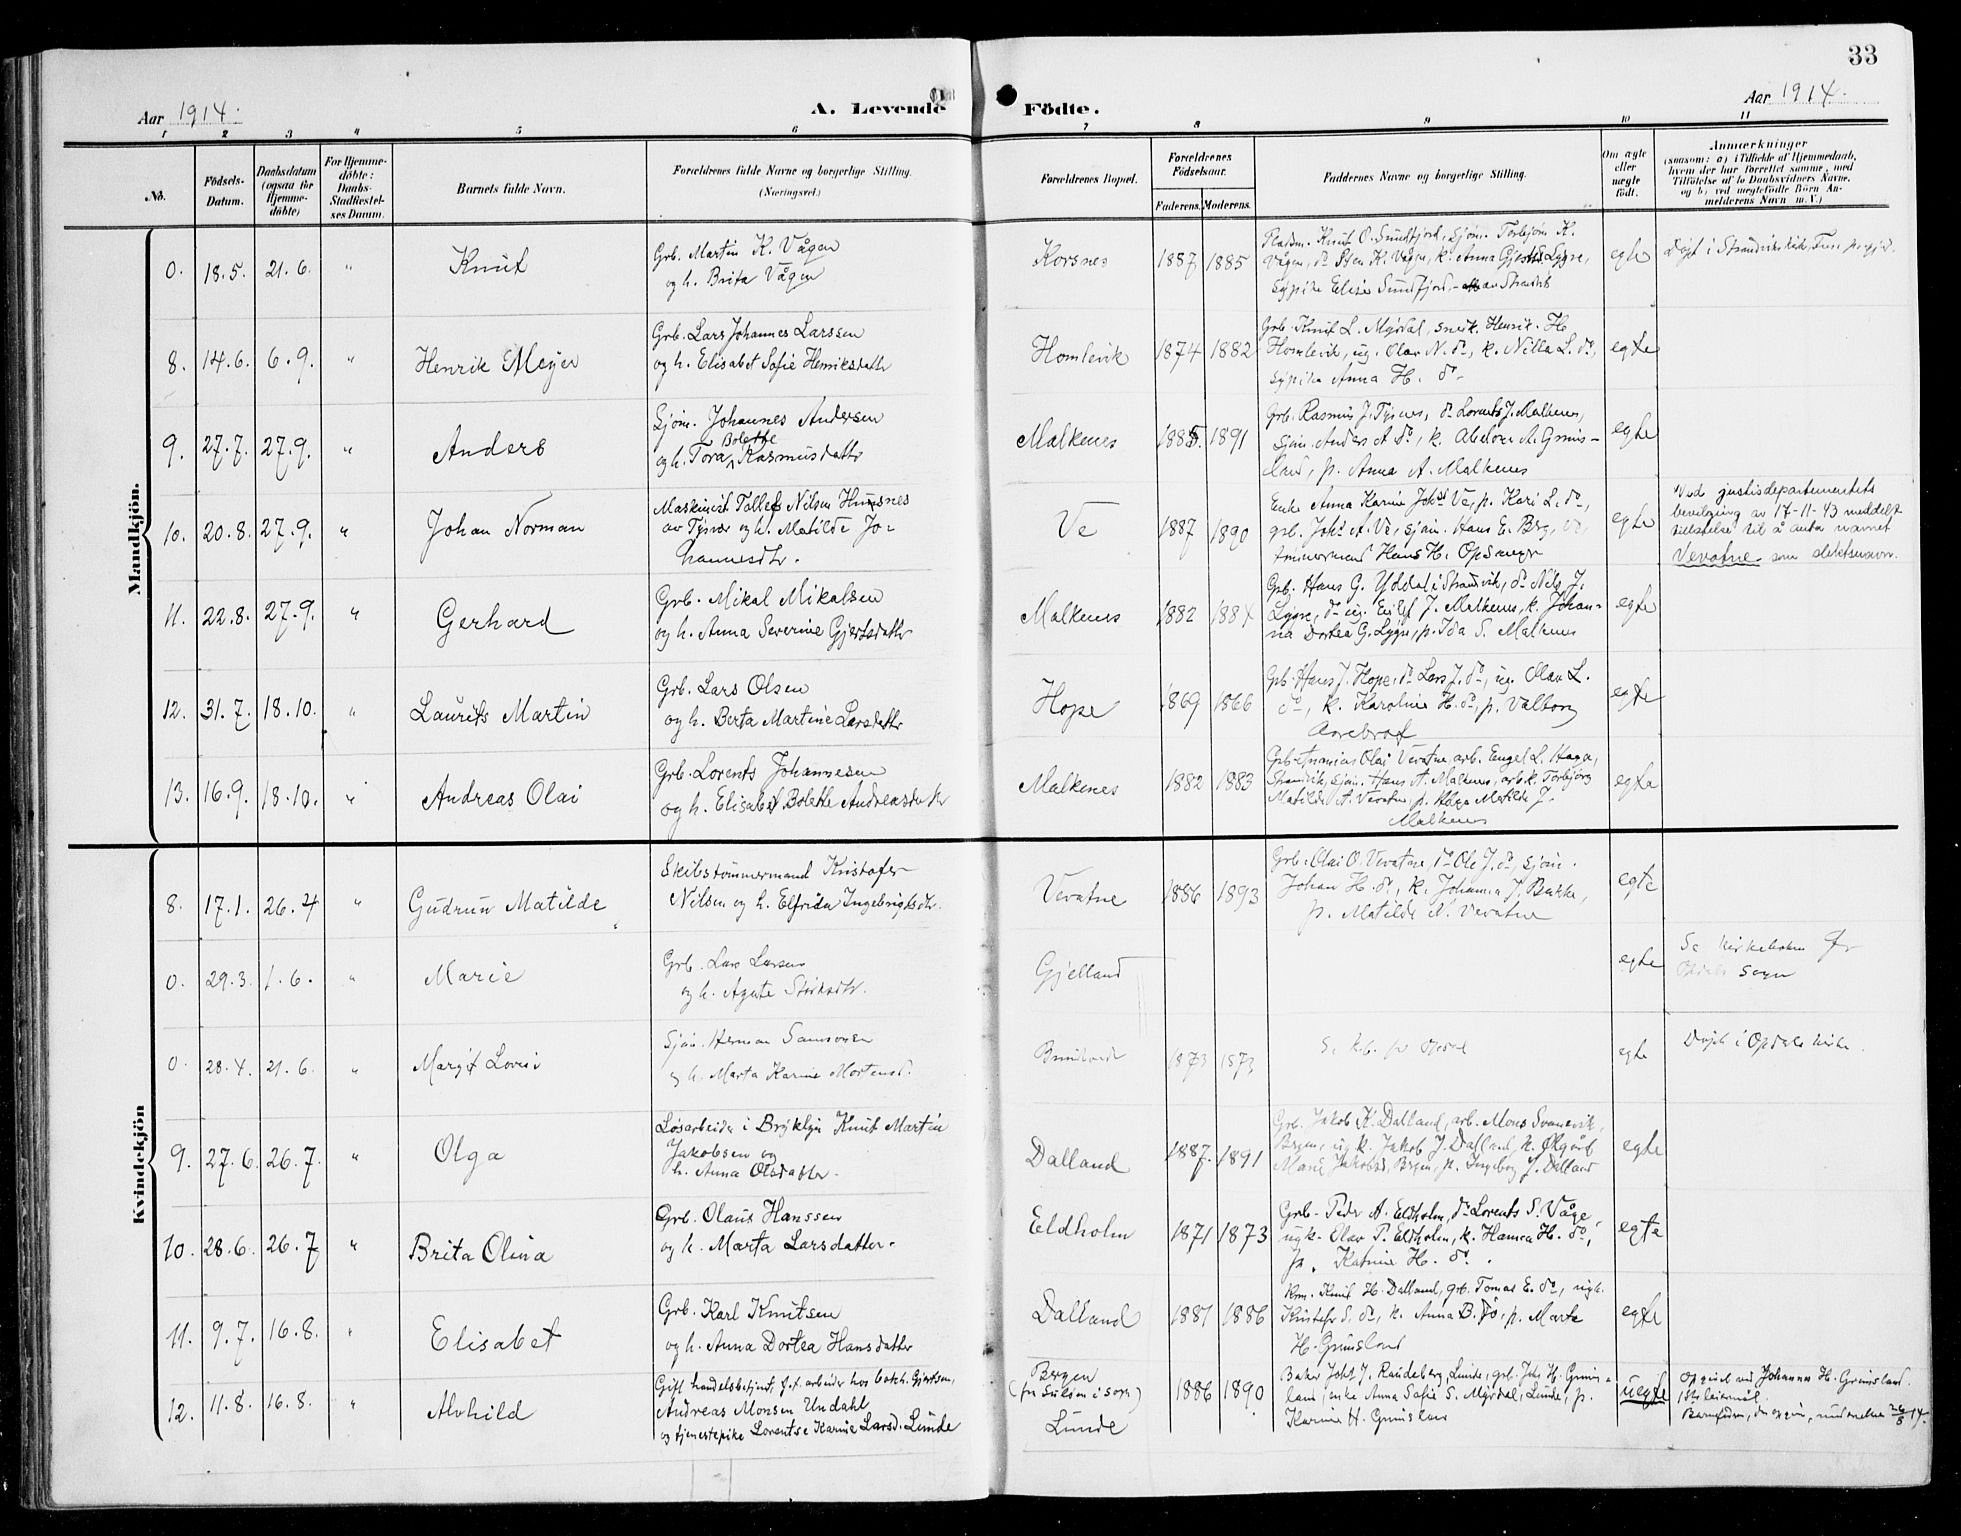 33
Aar 1914.
A. Levende Födte.
Aar 1914.
1 2 3 4 5 6 7 8 9 10 11
No.
Födsels-Datum.
Daabsdatum (ogsaa for Hjemme-döbte)
For Hjemme-döbte: Daabs-Stadfæstel-ses Datum.
Barnets fulde Navn.
Forældrenes fulde Navne og borgerlige Stilling. (Næringsvei.)
Forældrenes Bopæl.
Forældrenes Födselsaar.
Faderens. Moderens.
Faddernes Navne og borgerlige Stilling.
Om ægte eller uægte født.
Anmærkninger
(saasom: a) i Tilfælde af Hjemmedaab,
hvem der har forrettet samme, med
Tilföielse af to Daabsvidners Navne,
og b) ved uægtefödte Börn An-
melderens Navn m. V.)
Mandkjön.
0. 18.5. 21.6. " Knut
Grb. Martin K. Vågen
og h. Brita Vågen
Korsnes 1887 1885
Knut O. Sundfjord, Sjøm. Torbjørn K.
Vågen, do Sten K. Vågen, k. Anna Lygre,
sypike Elise Sundfjord
egte
Døpt i Strandvik kirke, Fusa prgjd.
8. 14.6. 6.9. " Henrik Meyer
Grb. Lars Johannes Larssen
og h. Elisabet Sofie Henriksdatr
Homlevik 1874 1882
Grb. Knut L. Myrdal, snek. Henrik H.
Homlevik, ug. Olav N. do, k. Nilla L. do,
sypike Anna H. do
egte
9. 27.7. 27.9. " Anders
Sjøm. Johannes Andersen
og h. Tora Bolette Rasmusdatr
Malkenes 1885. 1891
Grb. Rasmus J. Tysnes, do Lorents J. Malkenes,
Sjøm. Anders A. do, k. Abelone A. Grims-
land, p. Anna A. Malkenes
egte
10. 20.8. 27.9. " Johan Norman
Maskinist Tollef Nilsen Husnes
av Tysvær og h. Matilde Jo-
hannesdtr.
Ve 1887 1890
Enke Anna Karine Johsd Ve, p. Kari L. do,
grb. Johs A. Ve, sjøm. Hans E. Berg,
tømmermand Hans H. Opsanger
egte
Ved justisdepartementets
bevilgning av 17-11-43 meddelt
tillatelse til å anta navnet
Vevatne som slektsnavn.
11. 22.8. 27.9. " Gerhard
Grb. Mikal Mikalsen
og h. Anna Severine Gjertsdatr
Malkenes 1882 1884
Grb. Hans G. Yddal i Strandvik, do Nils J.
Lygre, do ug. Eilef J. Malkenes, k. Johan-
na Dortea G. Lygre, p. Ida S. Malkenes
egte
12. 31.7. 18.10. " Laurits Martin
Grb. Lars Olsen
og h. Berta Martine Larsdatr
Hope 1869 1866
Grb. Hans J. Hope, do Lars J. do, ug. Olav L.
do, k. Karoline H. do, p. Valborg
egte
13. 16.9. 18.10. " Andreas Olai
Grb. Lorents Johannesen
og h. Elisabet Bolette Andreasdatr
Malkenes 1882 1883
Grb. Olai Vevatne, arb. Engel L. Haga,
Strandvik, sjøm. Hans A. Malkenes, arb.k. Torbjørg
Matilde A. Vevatne, p. Helga Matilde J.
Malkenes
egte
Kvindekjön
8. 17.1. 26.4 " Gudrun Matilde
Skibstømmermand Kristofer
Nilsen og h. Elfrida Ingebrigtsdtr.
Vevatne 1886 1893
Grb. Olai O. Vevatne, do Ole J. do, sjøm.
Johan H. do, k. Johanna J. Bakke,
p. Matilde N. Vevatne
egte
0. 29.3. 1.6. " Marie
Grb. Lars Larsen
og h. Agate
Gjelland
egte
Se kirkeboken for
sogn
0. 28.4. 21.6. " Margit Lovise
Sjøm. Herman Samsonsen
og h. Marta Karine Mortensd.
1873 1873
S. k.b. for
egte
Døpt i Opdals kirke.
9. 27.6. 26.7. " Olga
Løsarbeider i Bryklyn Knut Martin
Jakobsen og
h. Anna Olsdatter.
Dalland 1887. 1891
Grb. Jakob K. Dalland, arb. Mons Svanevik,
Bergen, ug.k. Jakob J. Dalland, k. Olgard
Marie Jakobsd, Bergen, p. Ingeborg J. Dalland
egte
10. 28.6. 26.7 " Brita Olina
Grb. Olaus Hanssen
og h. Marta Larsdatter.
Eldholm 1871 1873
Grb. Peder A. Eldholm, do Lorents S. Våge,
ugk. Olav P. Eldholm, k. Hanna H. do,
p. Katrine H. do.
egte
11. 9.7. 16.8. " Elisabet
Grb. Karl Knutsen
og h. Anna Dortea Hansdatter
Dalland 1881 1886
Knut H. Dalland, grb. Tomas E. do, ugk.
Kristofer S. do, k. Anna B. do, p. Marta
H. Grimsland
egte
12. 11.8. 16.8. " Alvhild
Gift handelsbetjent, f.t. arbeider hos Gjertsen,
Andreas Monsen Undahl
og tjenestepike Lorentse Karine Larsd. Lunde
Bergen
Lunde
1886 1890
Baker Johs J. Randeberg, Lunde, grb. Johs H. Grims-
land, enke Anna Sofie S. Myrdal, Lunde, p.
Karine H. Grimsland
uegte
Opgivet av Johannes H. Grimsland.
1ste leiermål.
Barnefaren, den opgivne, underrettet 26/8 14.